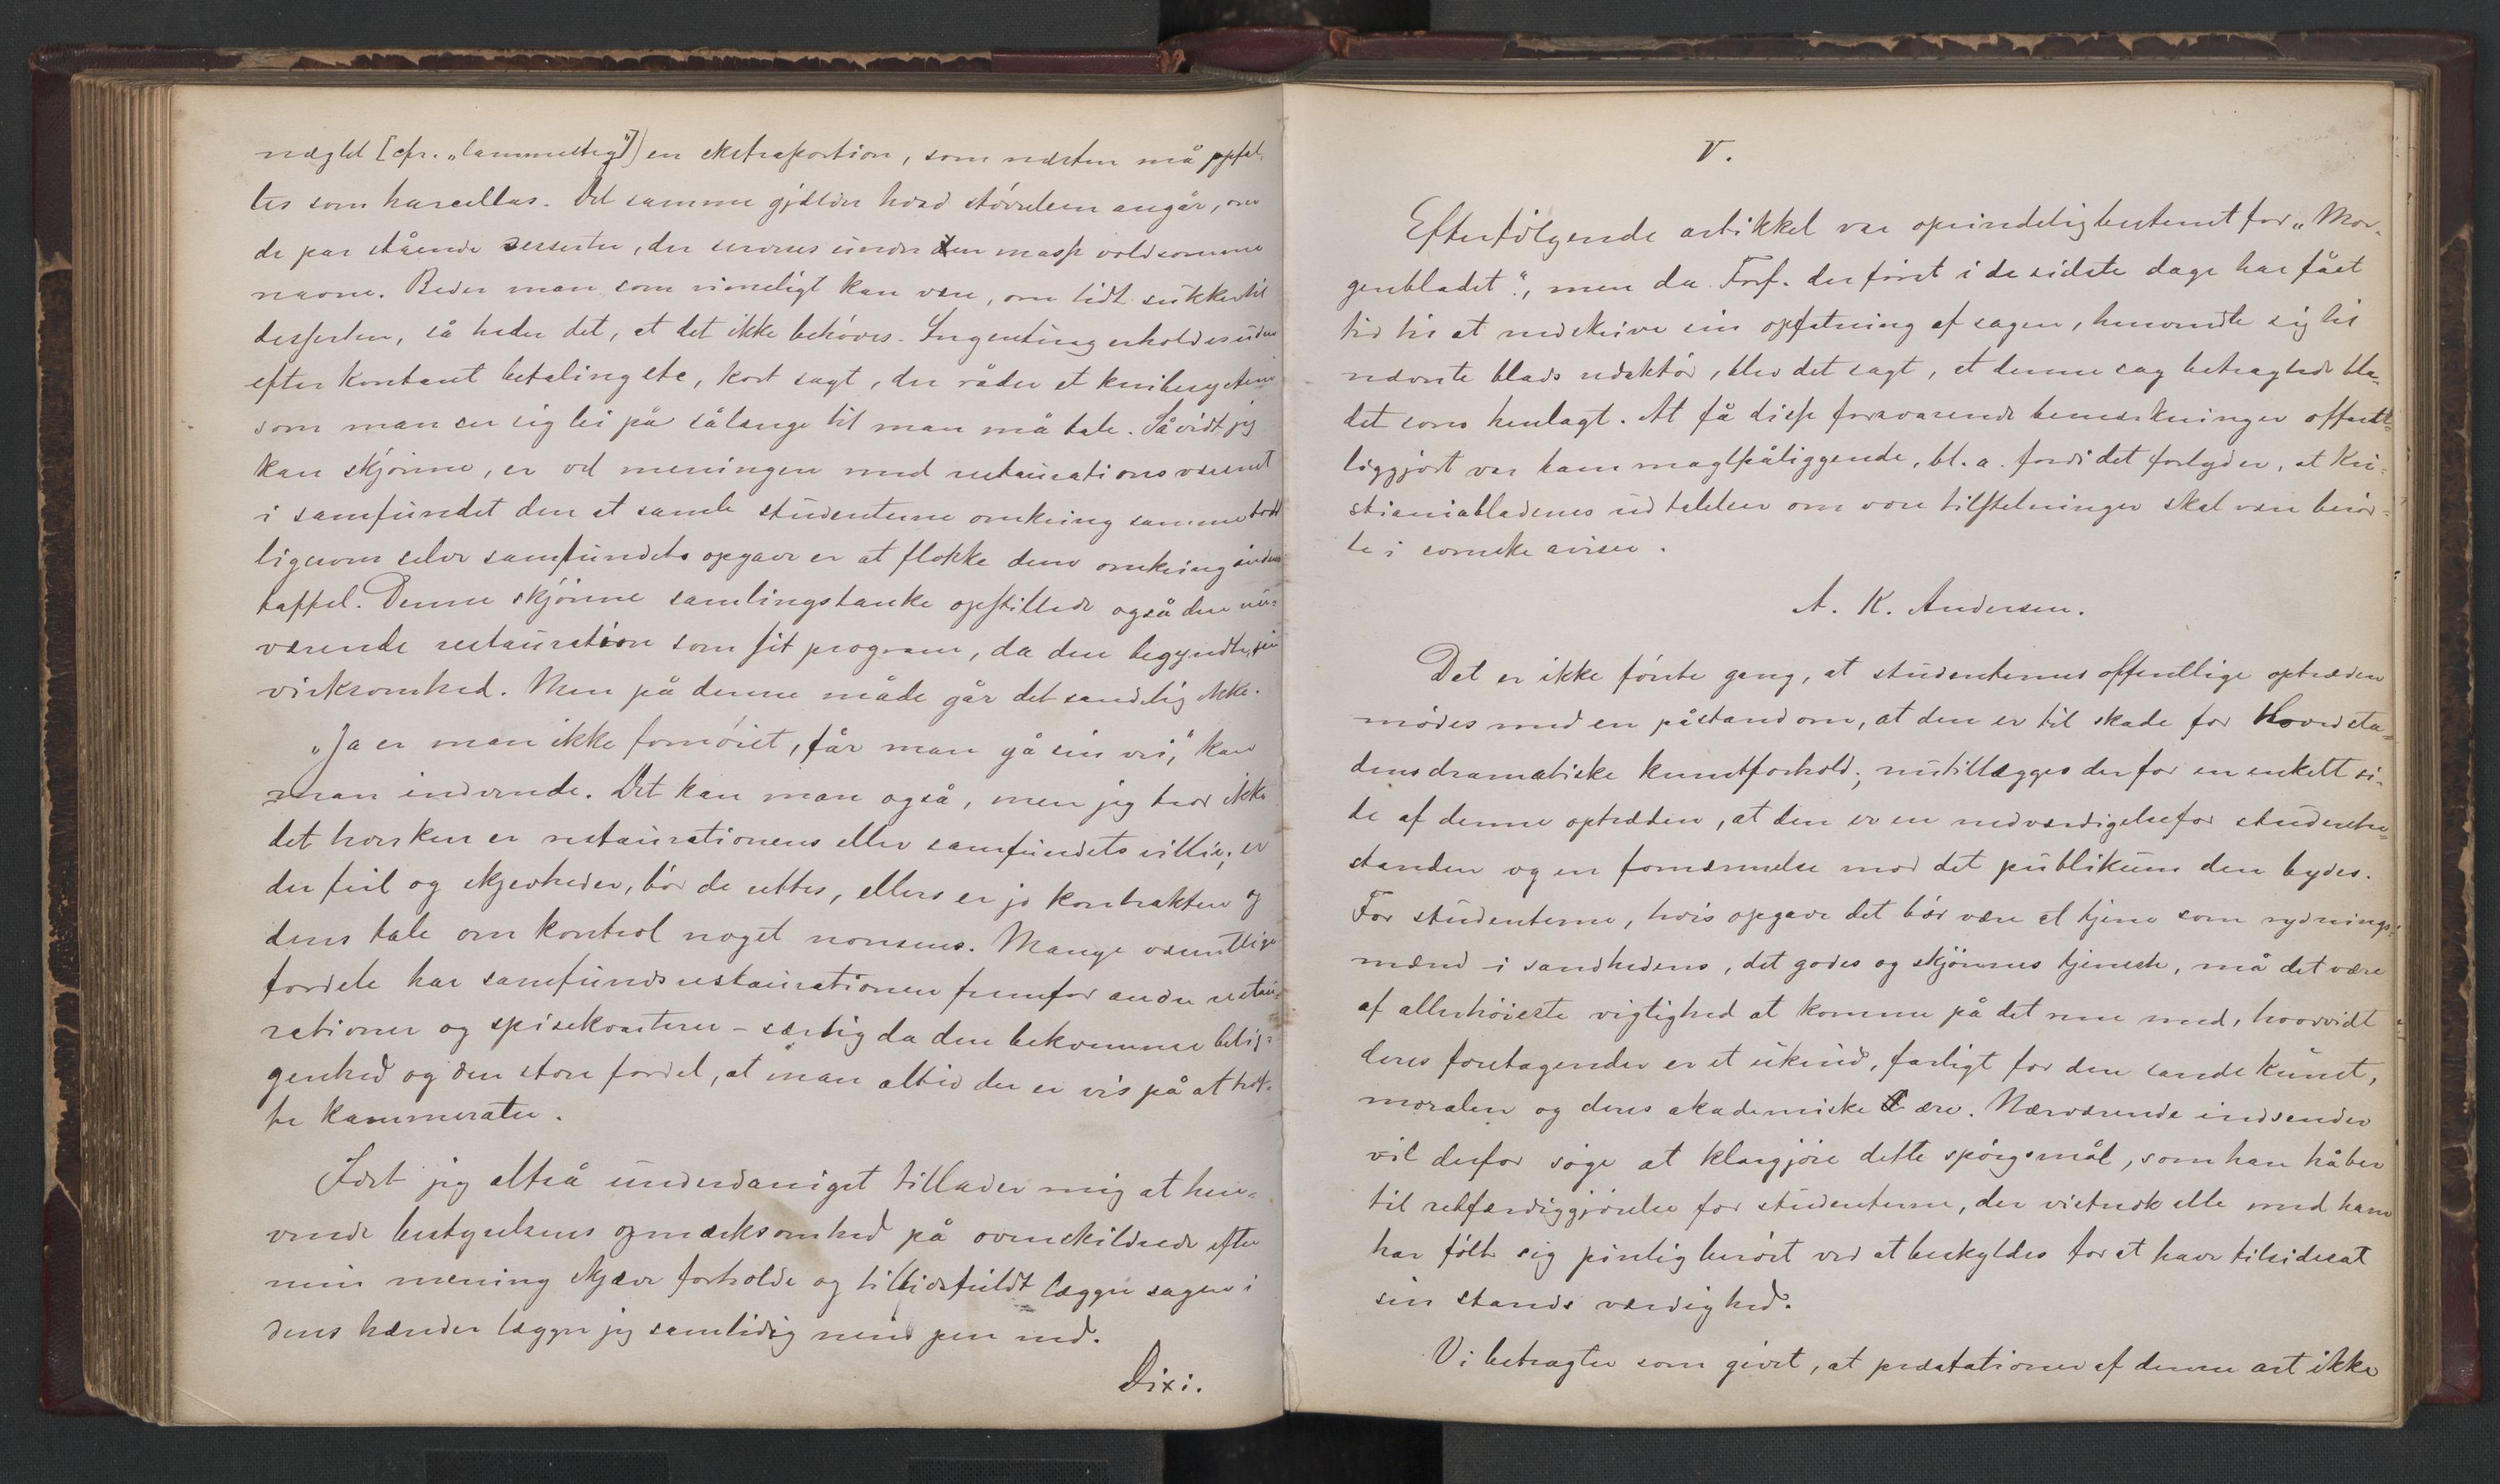 nægtet [cfr. „lammesteg"] en ekstraportion, som næsten må opfat-
tes som harcellas. Det samme gjælder hvad størrelsen angår, om
de par stående desserter, der serveres under den masse voldsomme
navne. Beder man som rimeligt kan være, om lidt sukker til
desserten, så heder det, at det ikke behøves. Ingenting erholdes uden
efter kontant betaling etc, kort sagt, der råder et knibesystem
som man ser sig lei på sålænge til man må tale. Så vidt jeg
kan skjönne, er vel meningen med restaurationsvæsenet
i samfundet den at samle studenterne omkring samme bord
ligesom selve samfundets opgave er at flokke dem omkring åndens
taffel. Denne skjönne samlingstanke opstillede også den nu-
værende restauration som sit program, da den begyndte sin
virksomhed. Men på denne måde går det sandelig ikke.
„Ja er man ikke fornöiet, får man gå sin vei," kan
man indvende. Det kan man også, men jeg tror ikke
det hverken er restaurationens eller samfundets villie; er
der feil og skjevheder, bör de rettes, ellers er jo kontrakten og
dens tale om kontrol noget nonsens. Mange væsentlige
fordele har samfundsrestaurationen fremfor andre restau-
rationer og spisekvarterer – særlig da den bekvemme belig-
genhed og den store fordel, at man altid der er vis på at træf-
fe kammerater.
Idet jeg altså underdanigst tillader mig at hen-
vende bestyrelsens opmærksomhed på ovenskildrede efter
min mening skjæve forholde og tillidsfuldt lægger sagen i
dens hænder lægger jeg samtidig min pen ned.
Dixi.
V.
Efterfölgende artikkel var oprindelig bestemt for „Mor-
genbladet", men da Forf. der först i de sidste dage har fået
tid til at nedskrive sin opfatning af sagen, henvendte sig til
nævnte blads redaktör, blev det sagt, at denne sag betragtede bla-
det som henlagt. At få disse forsvarende bemærkninger offent-
liggjort var ham magtpåliggende, bl. a. fordi det forlyder, at Kri-
stianiabladenes udtalelser om vore tilstelninger skal være berör-
te i svenske aviser.
A. K. Andersen.
Det er ikke förste gang, at studenternes offentlige optræden
mödes med en påstand om, at den er til skade for Hovedsta-
dens dramatiske kunstforhold; nu tillægges derfor en enkelt si-
de af denne optræden, at den er en nedværdigelse for studenter-
standen og en fornærmelse mod det publikum den bydes.
For studenterne, hvis opgave det bör være at tjene som rydnings-
mænd i sandhedens, det godes og skjönnes tjeneste, må det være
af allerhöieste vigtighed at komme på det rene med, hvorvidt
deres foretagender er et ukrud, farligt for den sande kunst,
moralen og deres akademiske ære. Nærværende indsender
vil derfor söge at klargjöre dette spörgsmål, som han håber
til retfærdiggjörelse for studenterne, der vistnok alle med ham
har fölt sig pinlig berört ved at beskyldes for at have tilsidesat
sin stands værdighed.
Vi betragter som givet, at præstationer af denne art ikke